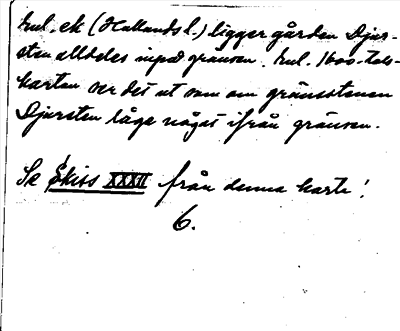 Enl. ek (Hallands l.) ligger gården Djur-
sten alldeles inpå gränsen. Enl. 1600-tals-
kartan ser det ut som om gränsstenen
Djursten låge något ifrån gränsen.
Se Skiss XXXII från denna karta!
6.